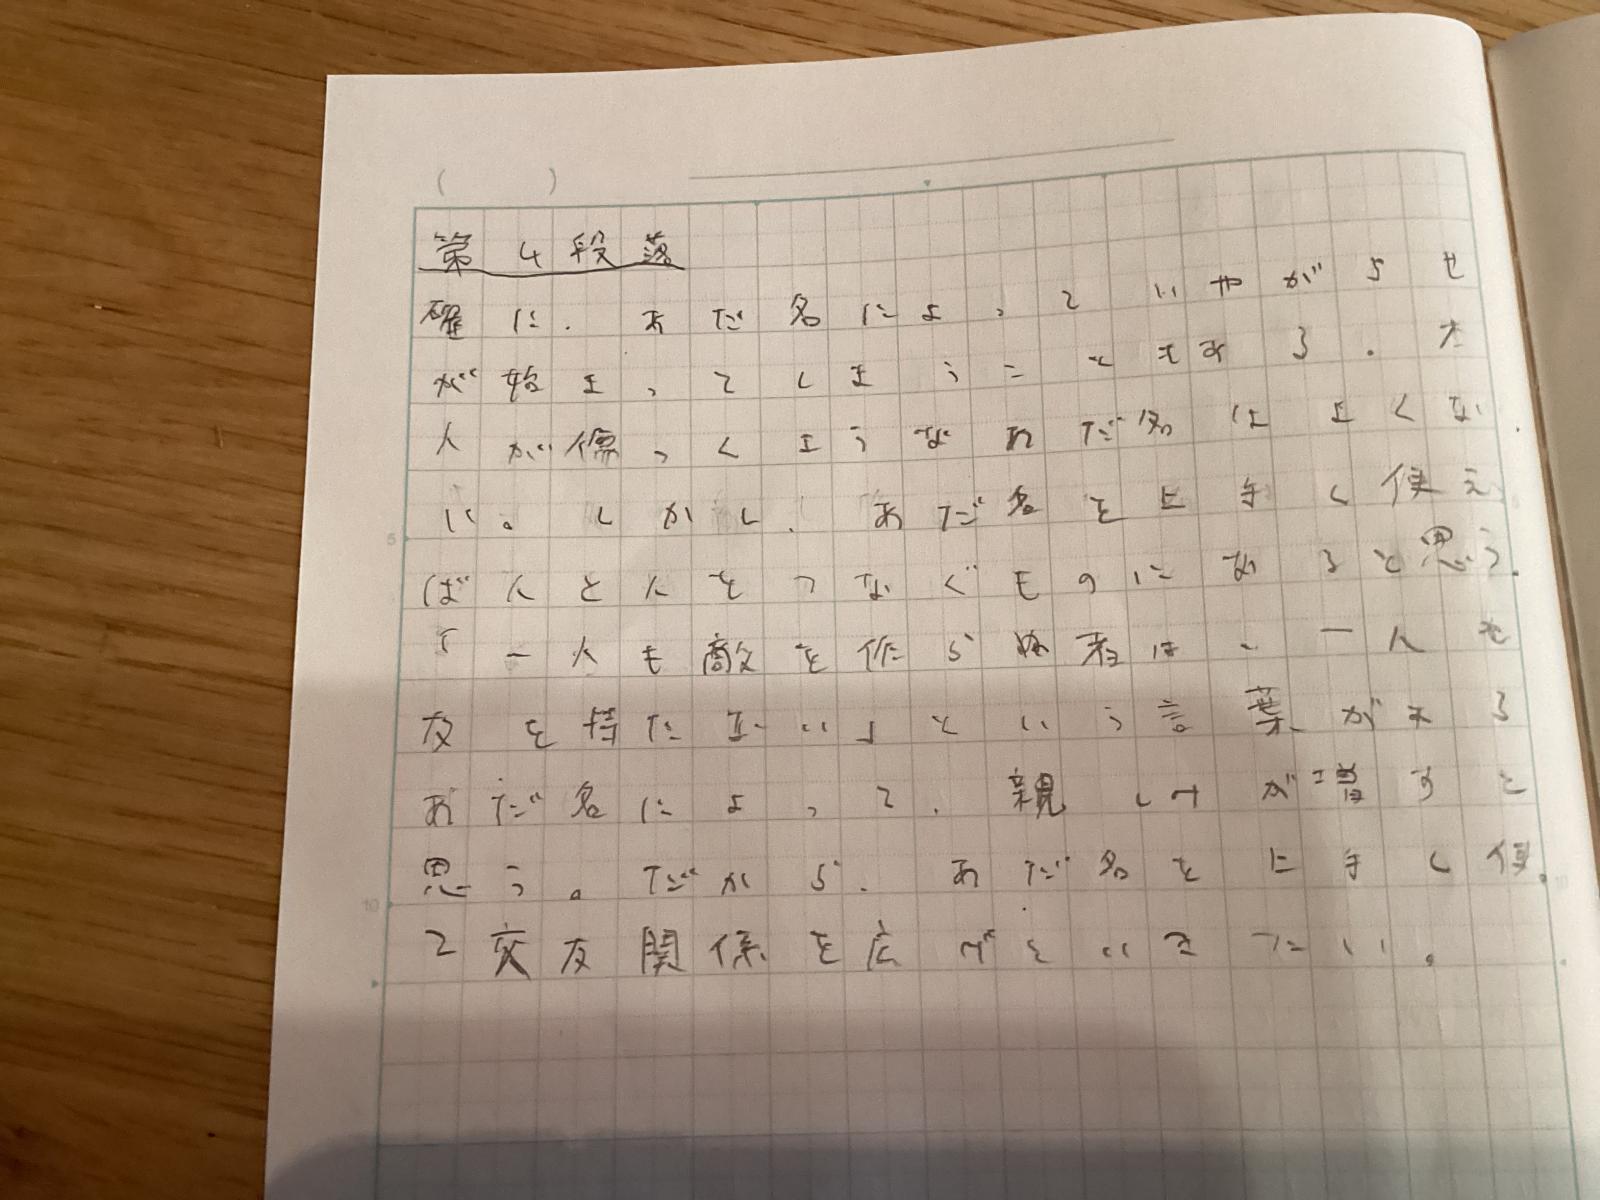 第4段落
確に、あだ名によっていやがらせ
が始まってしまうこともある。本
人が傷つくようなあだ名はよくな
い。しかし、あだ名を上手く使え
ば人と人をつなぐものになると思う。
「一人も敵を作らぬ者は、一人も
友を持たない」という言葉がある
あだ名によって、親しみが増すと
思う。だから、あだ名を上手く使
って交友関係を広げていきたい。
5
10